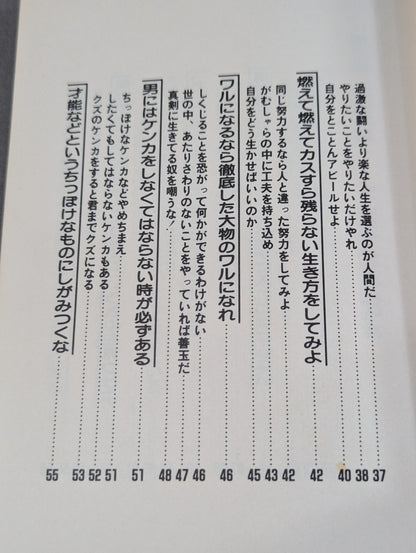 過激な闘いより楽な人生を選ぶのが人間だ……37
やりたいことをやりたいだけやれ……38
自分をとことんアピールせよ……40
燃えて燃えてカスすら残らない生き方をしてみよ……42
同じ努力するなら人と違った努力をしてみよ……42
がむしゃらの中に工夫を持ち込め……43
自分をどう生かせばいいのか……45
ワルになるなら徹底した大物のワルになれ……46
しくじることを恐がって何かができるわけがない……46
世の中、あたりさわりのないことをやっていれば善玉だ……47
真剣に生きてる奴を嘲うな！……48
男にはケンカをしなくてはならない時が必ずある……51
ちっぽけなケンカなどやめちまえ……51
したくてもしてはならないケンカもある……52
クズのケンカをすると君までクズになる……53
才能などというちっぽけなものにしがみつくな……55